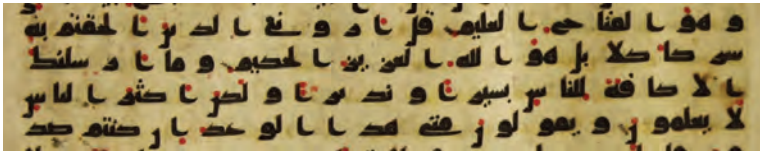 و هو الفتاح العليم قل ارونى الذين الحقتم به
شركا كلا بل هو الله العزيز الحكيم و ما ارسلنك
الا كافة للناس بشيرا و نذيرا و لكن اكثر الناس
لا يعلمون و يقولون متى هذا الوعد ان كنتم صد